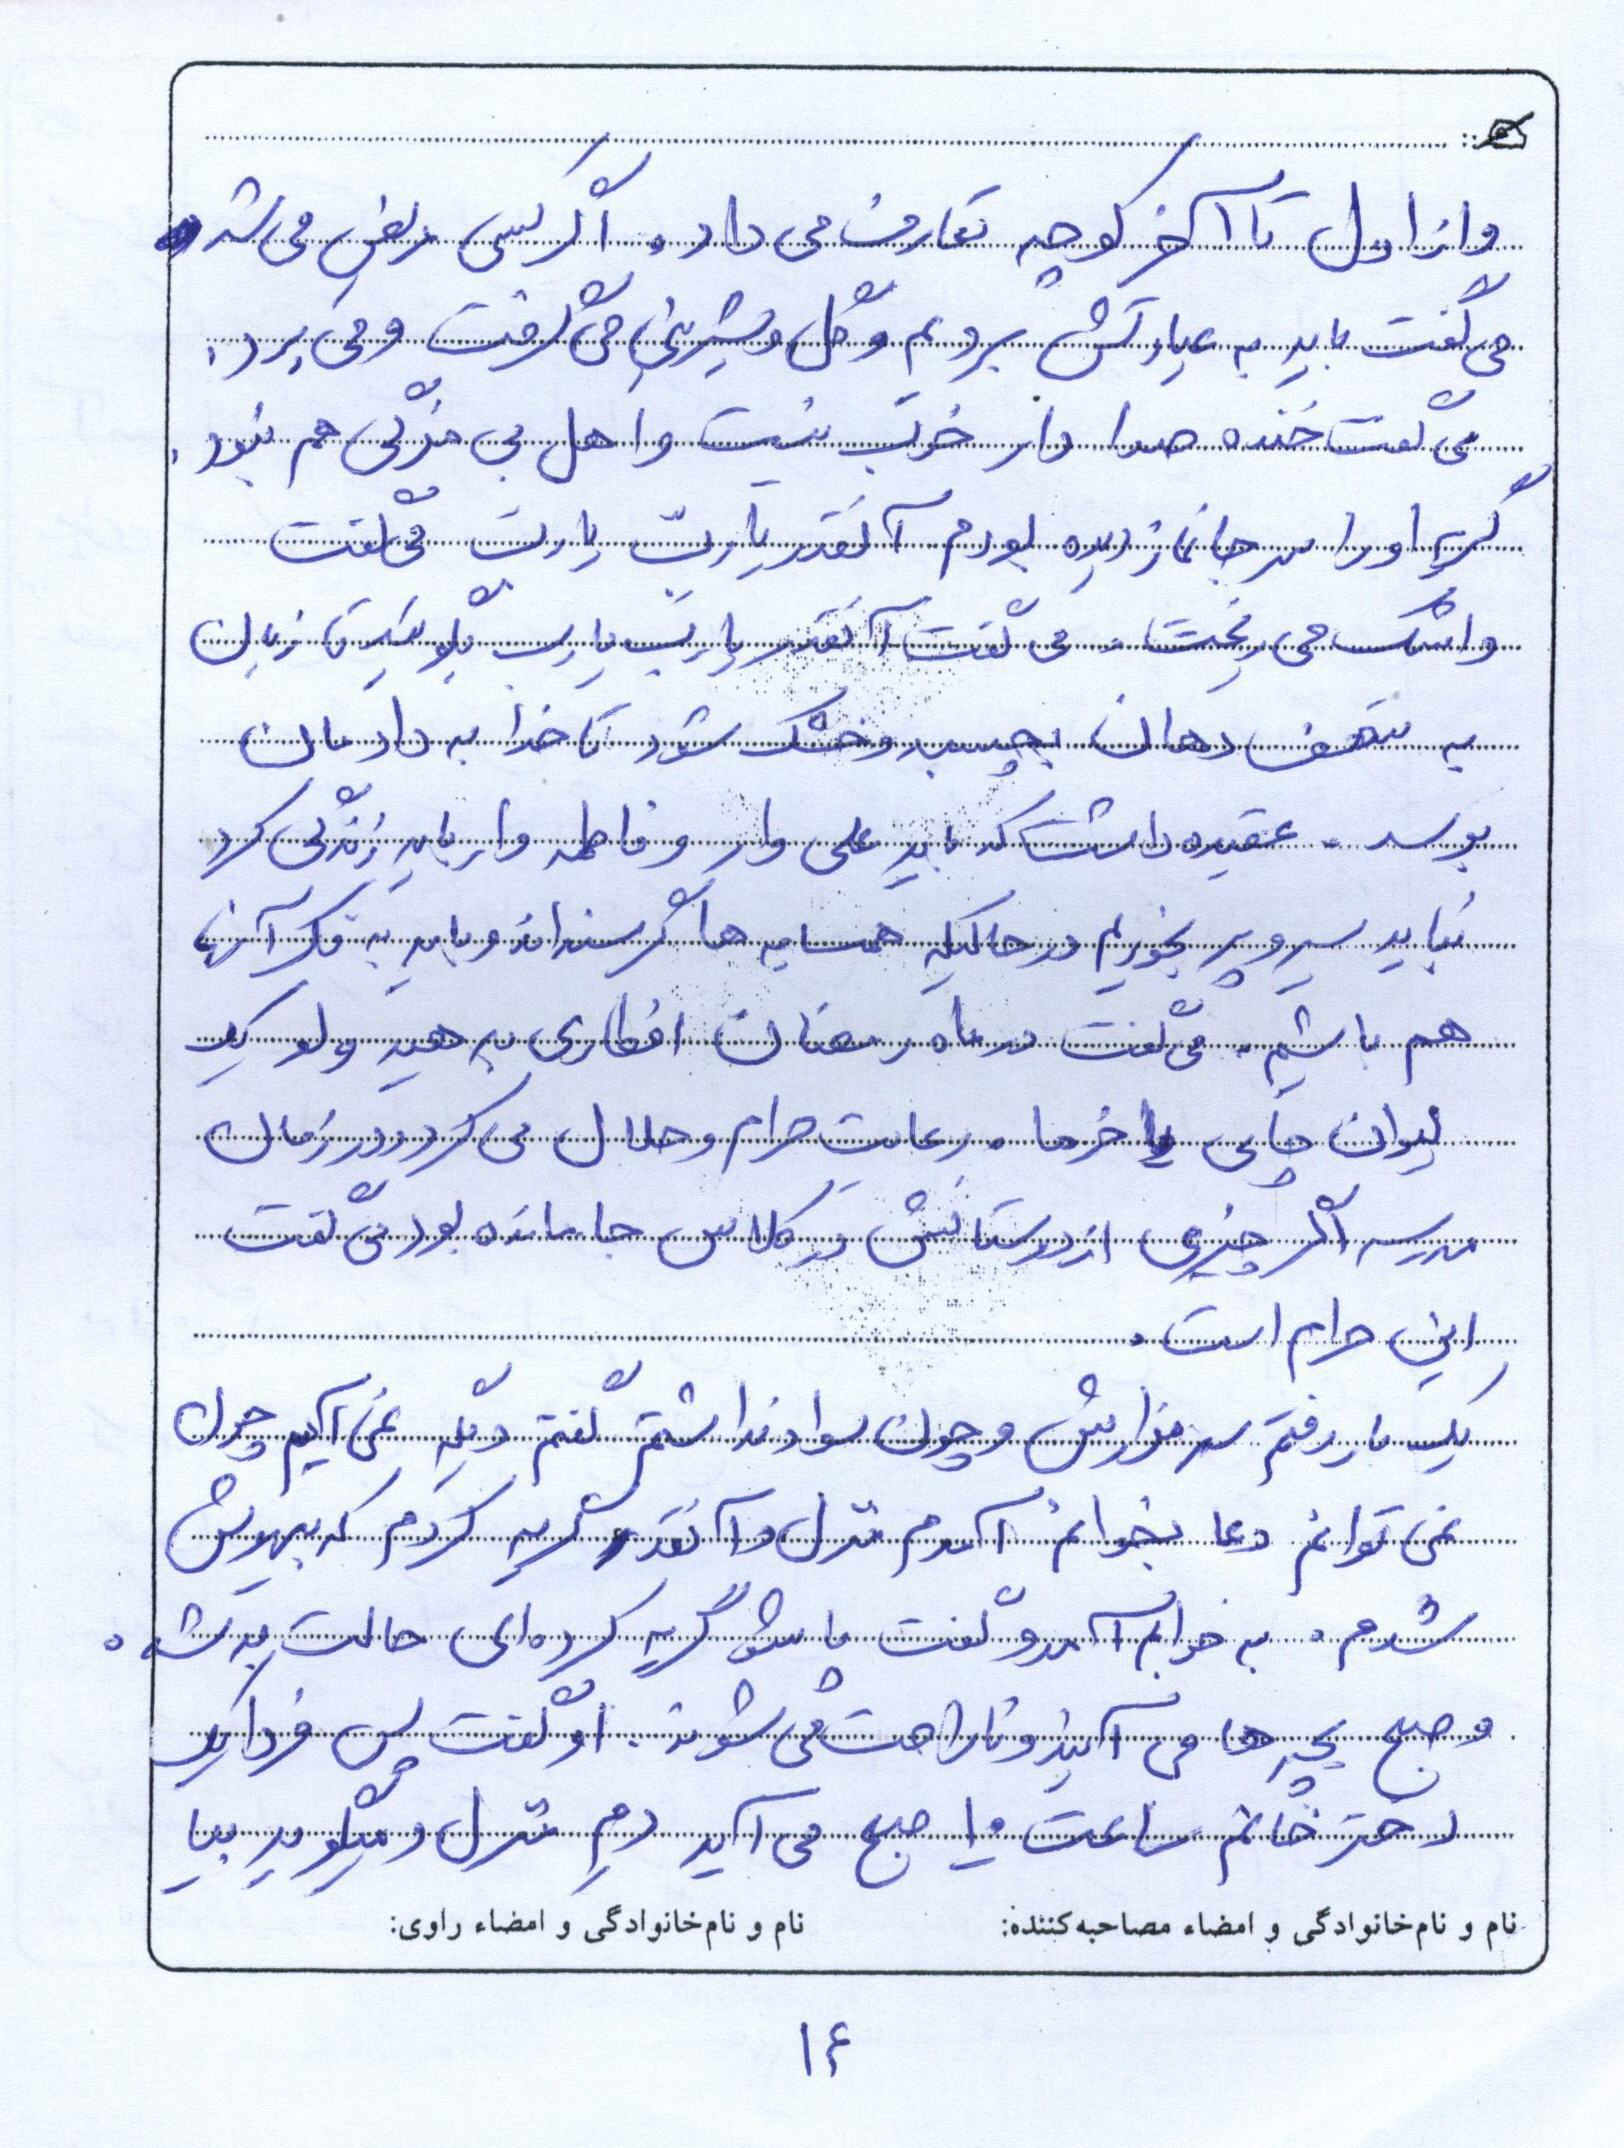 و از اول تا آخر کوچه تعارف می داد. اگر کسی مریض می شد
می گفت باید به عیادتش برویم و گل و شیرینی می گرفت و می برد.
می گفت خنده صدا دار خوب نیست و اهل بی مزگی هم نبود.
گریه او را سر جانماز دیده بودم آنقدر یا ربّ یا ربّ می گفت
و اشک می ریخت. می گفت آنقدر یا رب یا رب بگوئید تا زبان
به سقف دهان بچسبد و خشک شود تا خدا به دادمان
برسد. عقیده داشت که باید علی وار و فاطمه وار باید زندگی کرد
نباید سیر و پر بخوریم در حالیکه همسایه ها گرسنه اند و باید به فکر آنها
هم باشیم. می گفت در ماه رمضان افطاری بدهید ولو یک
لیوان چای یا خرما. رعایت حرام و حلال می کرد و در زمان
مدرسه اگر چیزی از دوستانش در کلاس جا مانده بود می گفت
این حرام است.
یک بار رفتم سر مزارش و چون سواد نداشتم گفتم دیگه نمی آیم چون
نمی توانم دعا بخوانم آمدم منزل و آنقدر گریه کردم که بیهوش
شدم. به خوابم آمد و گفت پاشو گریه کرده ای حالت بد شده.
و صبح بچه ها می آیند و ناراحت می شوند. او گفت پس فردا یک
دختر خانم ساعت ۱۰ صبح می آید درم منزل و میگوید بیا
نام و نام خانوادگی و امضاء مصاحبه کننده: نام و نام خانوادگی و امضاء راوی:
۱۶